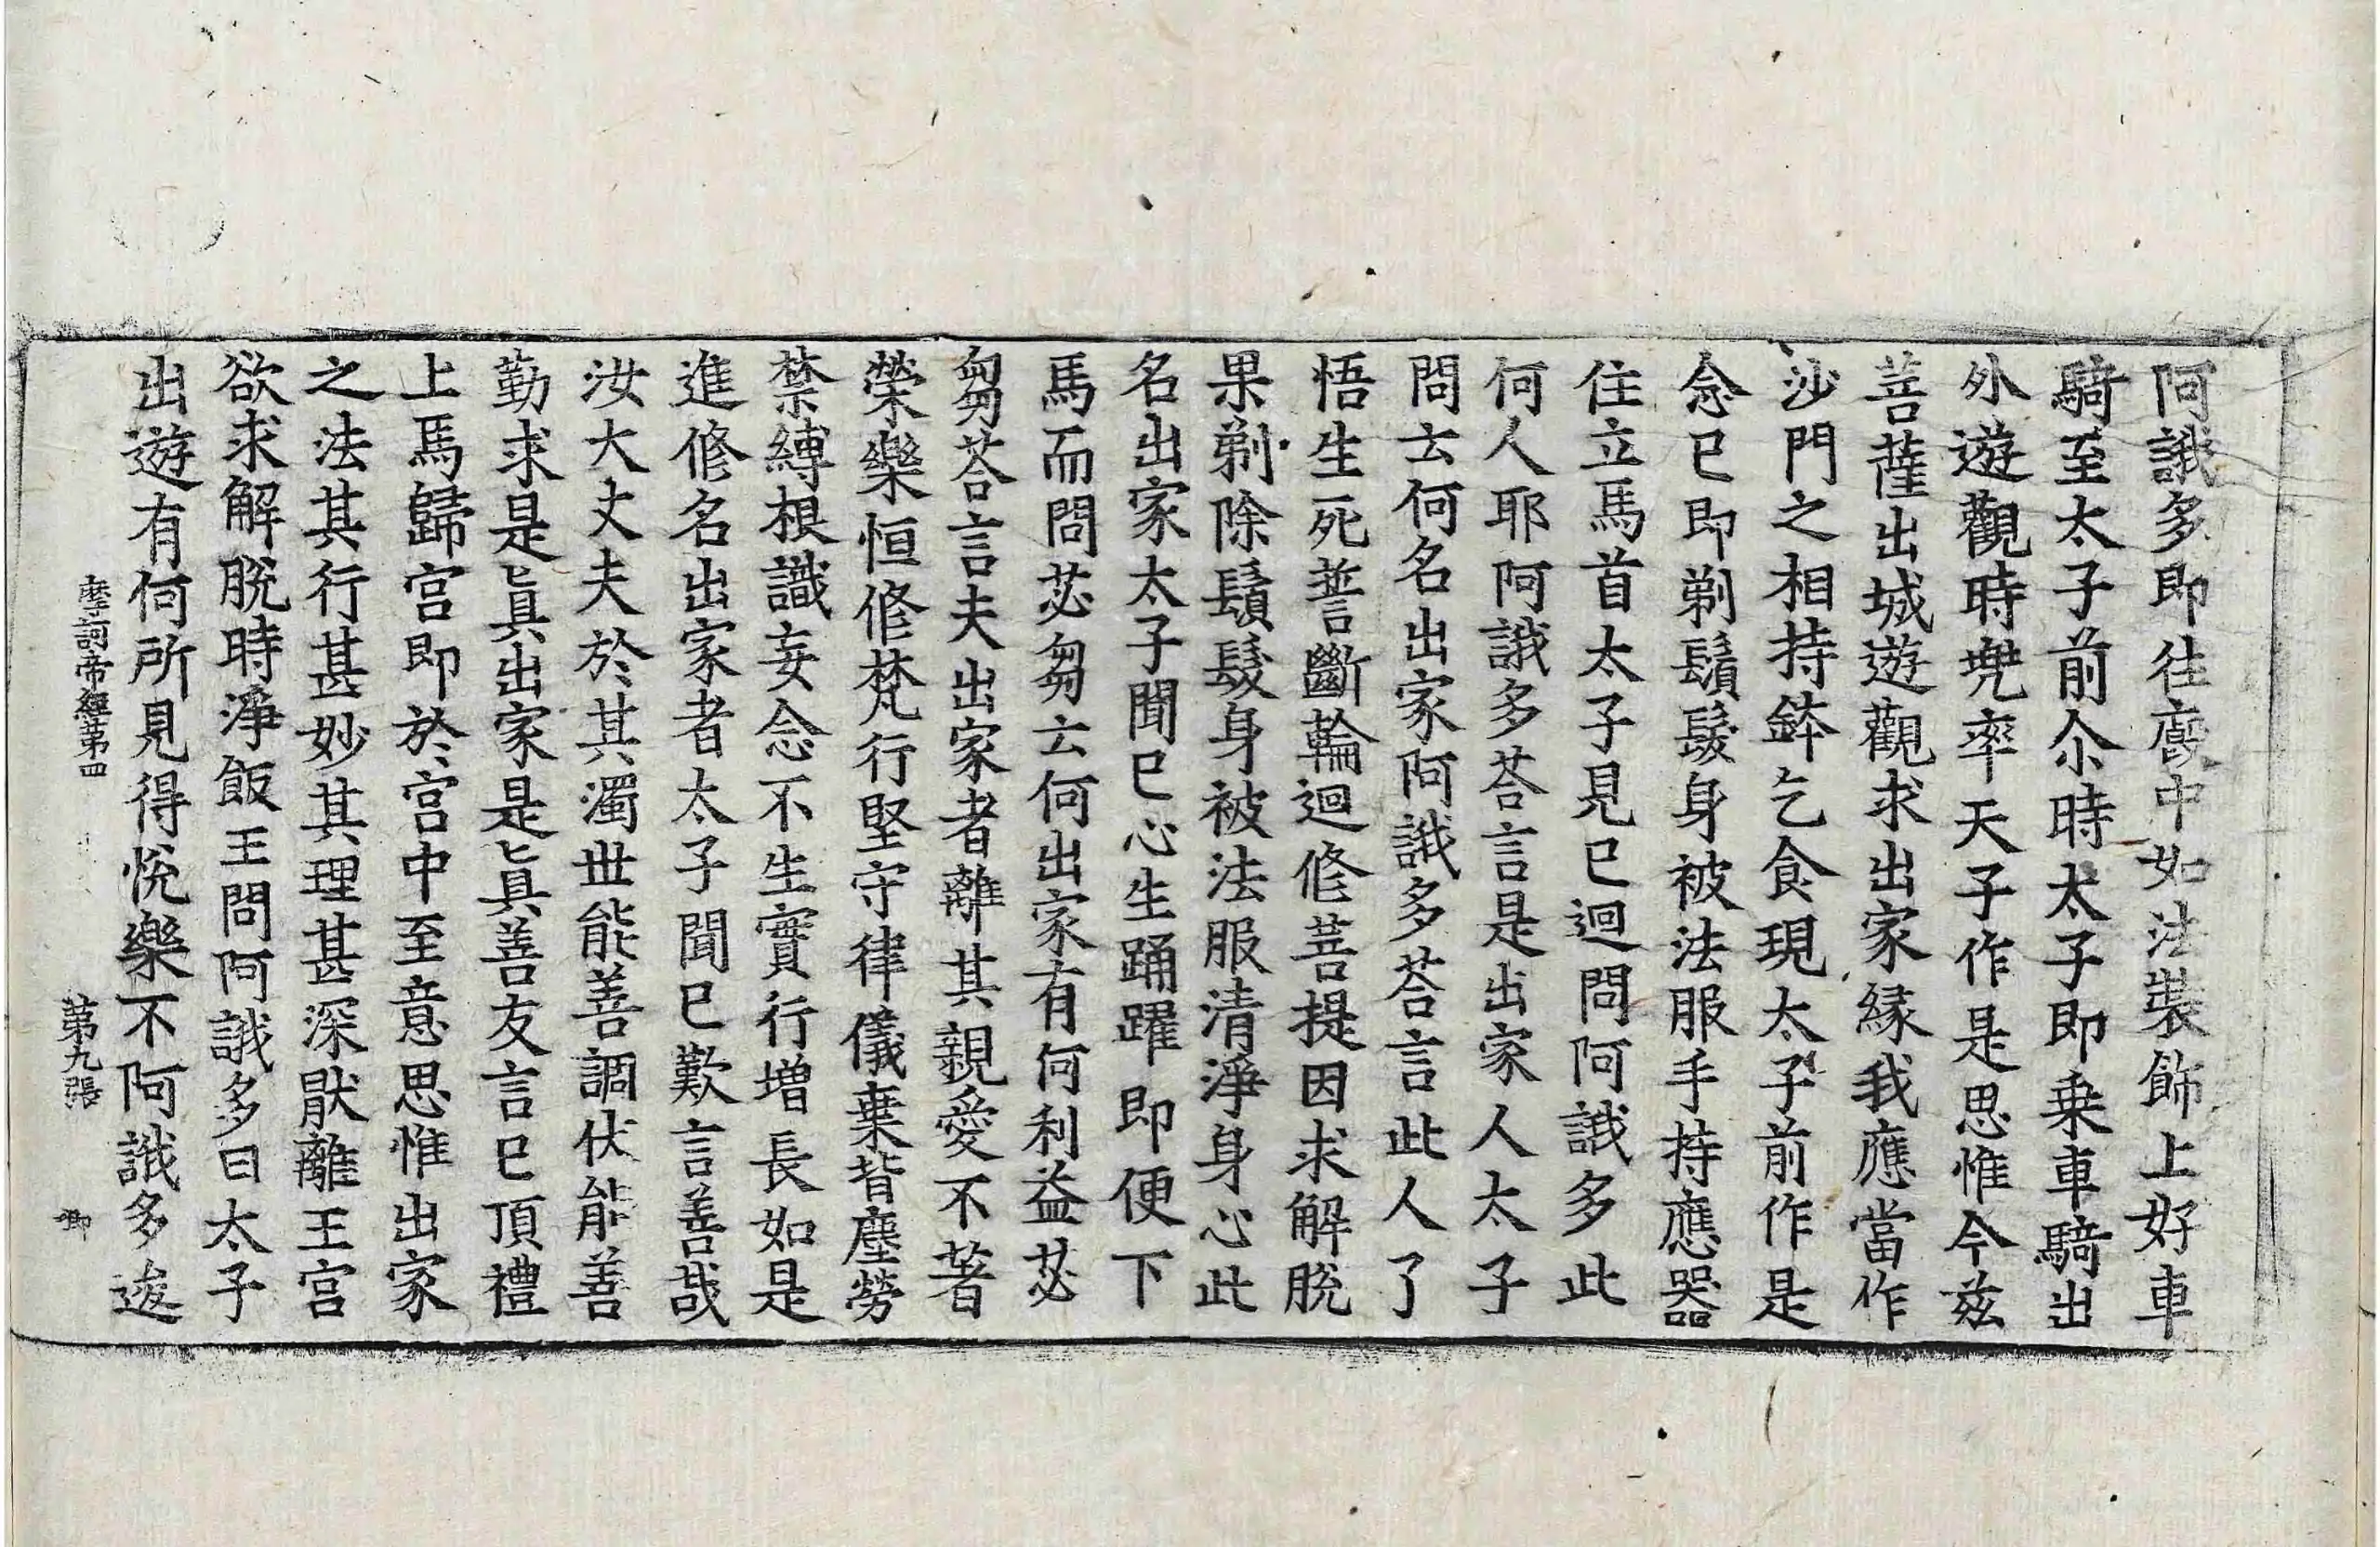 阿誐多即往廄中如法裝飾上好車
騎至太子前尒時太子即乗車騎出
外遊觀時兠率天子作是思惟今兹
菩薩出城遊觀求出家縁我應當作
沙門之相持鉢乞食現太子前作是
念已即剃鬚髮身被法服手持應器
住立馬首太子見已迴問阿誐多此
何人耶阿誐多荅言是出家人太子
問云何名出家阿誐多荅言此人了
悟生死誓斷輪迴修菩提因求解脫
果剃除鬚髮身被法服清淨身心此
名出家太子聞已心生踊躍即便下
馬而問苾芻云何出家有何利益苾
芻荅言夫出家者離其親愛不著
榮樂恒修梵行堅守律儀棄背塵勞
禁縛根識妄念不生實行増長如是
進修名出家者太子聞已歎言善哉
汝大丈夫於其濁世能善調伏能善
勤求是眞出家是眞善友言已頂禮
上馬歸宮即於宮中至意思惟出家
之法其行甚妙其理甚深猒離王宮
欲求解脫時淨飯王問阿誐多曰太子
出遊有何所見得悅樂不阿誐多逡
摩訶帝經第四 第九張 卿